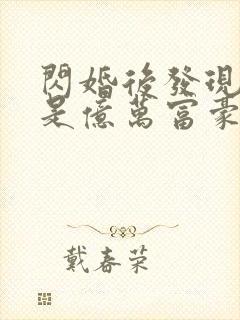 閃婚後發現
是億萬富豪
戴春荣